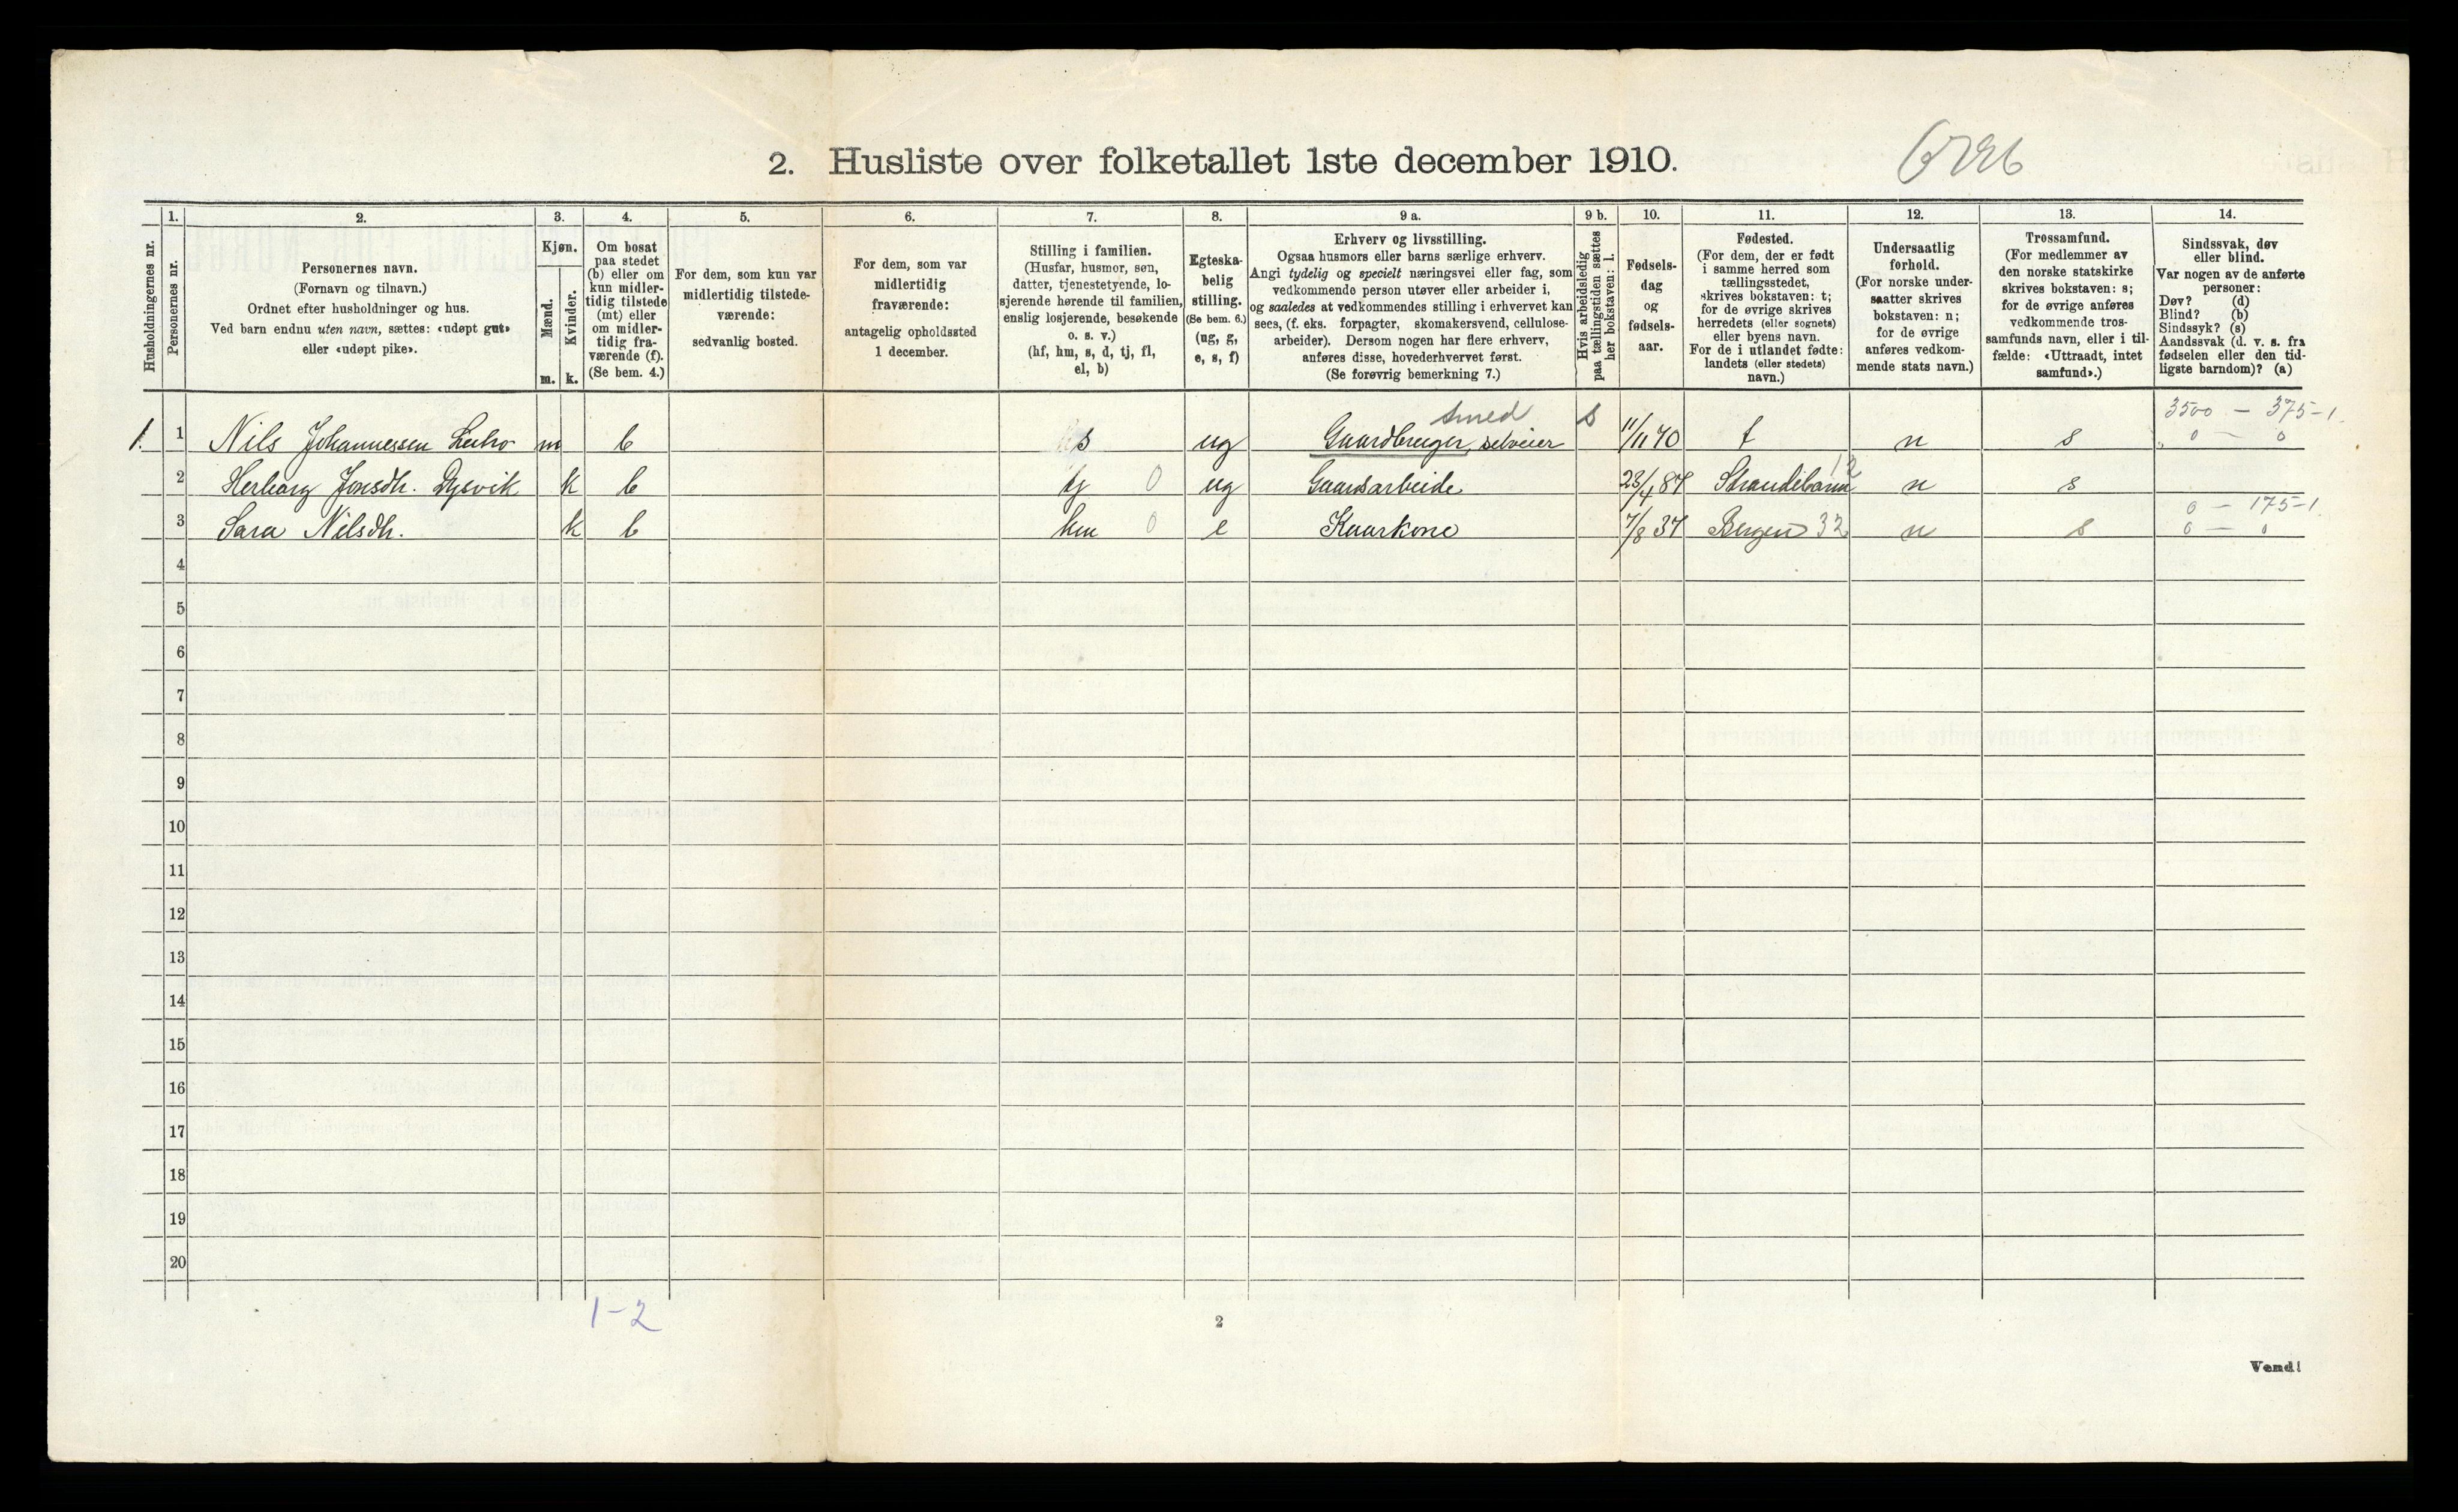 2. Husliste over folketallet 1ste december 1910.
1. 2. 3. 4. 5. 6. 7. 8. 9 a. 9 b. 10. 11. 12. 13. 14.
Husholdningernes nr.
Personernes nr.
Personernes navn.
(Fornavn og tilnavn.)
Ordnet efter husholdninger og hus.
Ved barn endnu uten navn, sættes: «udøpt gut»
eller «udøpt pike».
Kjøn.
Mænd.
m.
Kvinder.
k.
Om bosat
paa stedet
(b) eller om
kun midler-
tidig tilstede
(mt) eller
om midler-
tidig fra-
værende (f).
(Se bem. 4.)
For dem, som kun var
midlertidig tilstede-
værende:
sedvanlig bosted.
For dem, som var
midlertidig
fraværende:
antagelig opholdssted
1 december.
Stilling i familien.
(Husfar, husmor, søn,
datter, tjenestetyende, lo-
sjerende hørende til familien,
enslig losjerende, besøkende
o. s. v.)
(hf, hm, s, d, tj, fl,
el, b)
Egteska-
belig
stilling.
(Se bem. 6.)
(ug, g,
e, s, f)
Erhverv og livsstilling.
Ogsaa husmors eller barns særlige erhverv.
Angi tydelig og specielt næringsvei eller fag, som
vedkommende person utøver eller arbeider i,
og saaledes at vedkommendes stilling i erhvervet kan
sees, (f. eks. forpagter, skomakersvend, cellulose-
arbeider). Dersom nogen har flere erhverv,
anføres disse, hovederhvervet først.
(Se forøvrig bemerkning 7.)
Hvis arbeidsledig
paa tællingstiden sættes
her bokstaven: l.
Fødsels-
dag
og
fødsels-
aar.
Fødested.
(For dem, der er født
i samme herred som
tællingsstedet,
skrives bokstaven: t;
for de øvrige skrives
herredets (eller sognets)
eller byens navn.
For de i utlandet fødte:
landets (eller stedets)
navn.)
Undersaatlig
forhold.
(For norske under-
saatter skrives
bokstaven: n;
for de øvrige
anføres vedkom-
mende stats navn.)
Trossamfund.
(For medlemmer av
den norske statskirke
skrives bokstaven: s;
for de øvrige anføres
vedkommende tros-
samfunds navn, eller i til-
fælde: «Uttraadt, intet
samfund».)
Sindssvak, døv
eller blind.
Var nogen av de anførte
personer:
Døv? (d)
Blind? (b)
Sindssyk? (s)
Aandssvak (d. v. s. fra
fødselen eller den tid-
ligste barndom)? (a)
Smed s 3500 — 375-1
1. 1 Nils Johannessen m b s ug Gaardbruger, selveier 11/11 70 t n s 0 — 0
2 Herborg Jonsdtr. Dysvik k b tj 0 ug Gaardsarbeide 23/4 87 Strandebarm 12 n s
0 — 175-1
3 Sara Nilsdtr. k b hm 0 e Kaarkone 7/8 37 Bergen 32 n s 0 — 0
4
5
6
7
8
9
10
11
12
13
14
15
16
17
18
19
20
1-2
2
Vend!